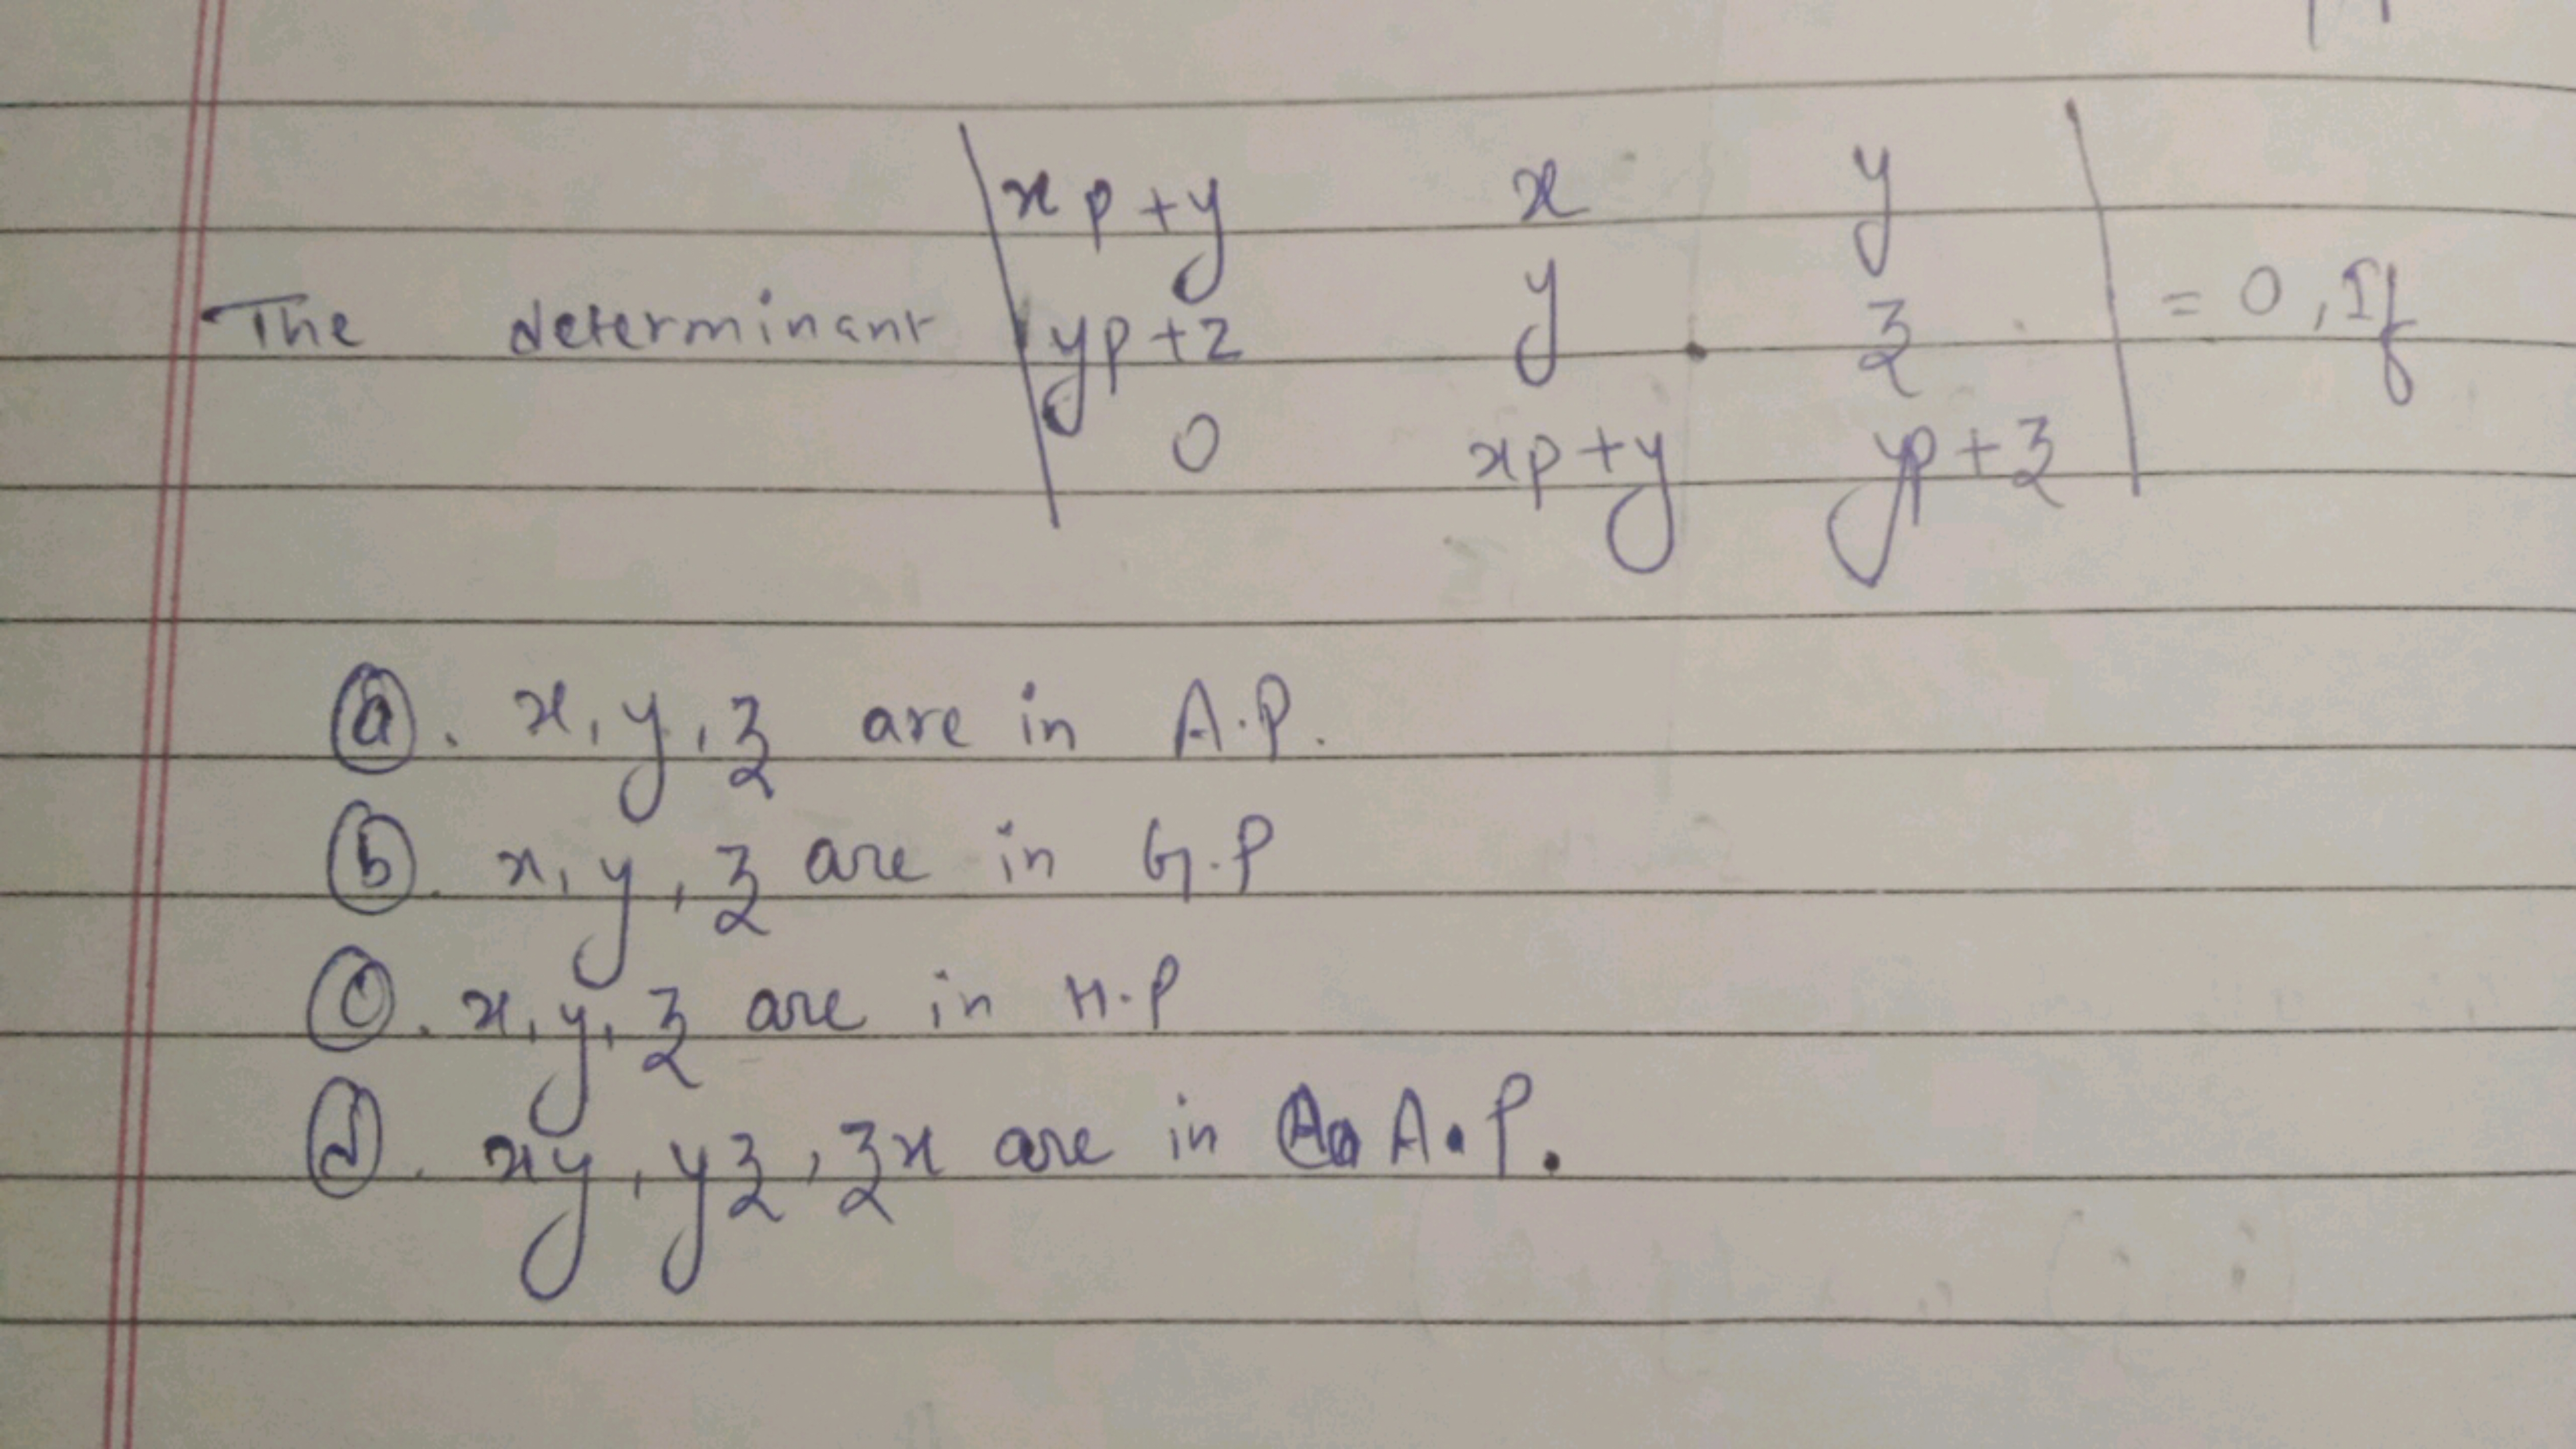 xp+y x y
The determinant yp+z y z = 0, If
0 xp+y yp+z
(a). x, y, z are in A.P.
(b). x, y, z are in G.P
(c). x, y, z are in H.P
(d). xy, yz, zx are in A.P.